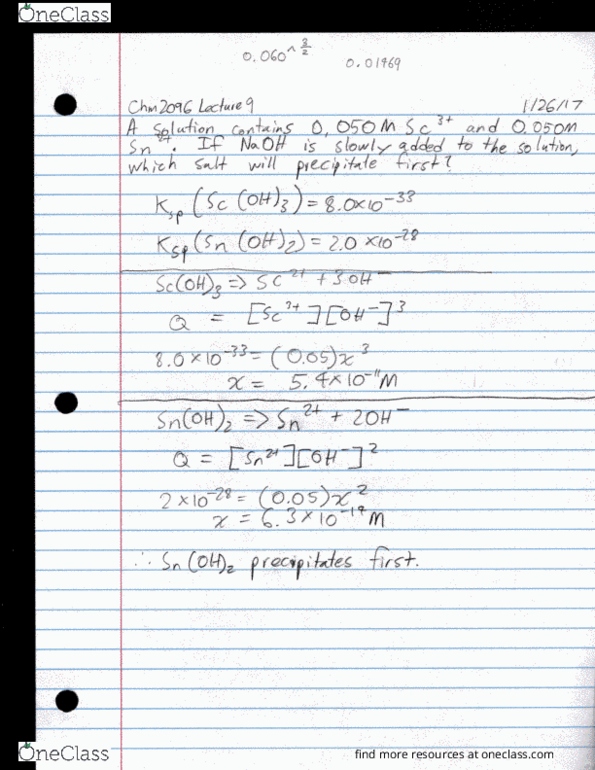 OneClass
0.060^3/2 0.01469
Chm2096 Lecture 9 1/26/17
A solution contains 0,050M Sc3+ and 0.050M
Sn2+. If NaOH is slowly added to the solution,
which salt will precipitate first?
Ksp (Sc(OH)3) = 8.0x10-33
Ksp (Sn(OH)2) = 2.0 x10-28
Sc(OH)3 => Sc2+ + 3OH-
Q = [Sc3+][OH-]3
8.0 x 10-33 = (0.05)x3
x = 5.4x10-11M
Sn(OH)2 => Sn2+ + 2OH-
Q = [Sn2+][OH-]2
2 x10-28 = (0.05)x2
x = 6.3x10-14M
∴ Sn(OH)2 precipitates first.
OneClass find more resources at oneclass.com